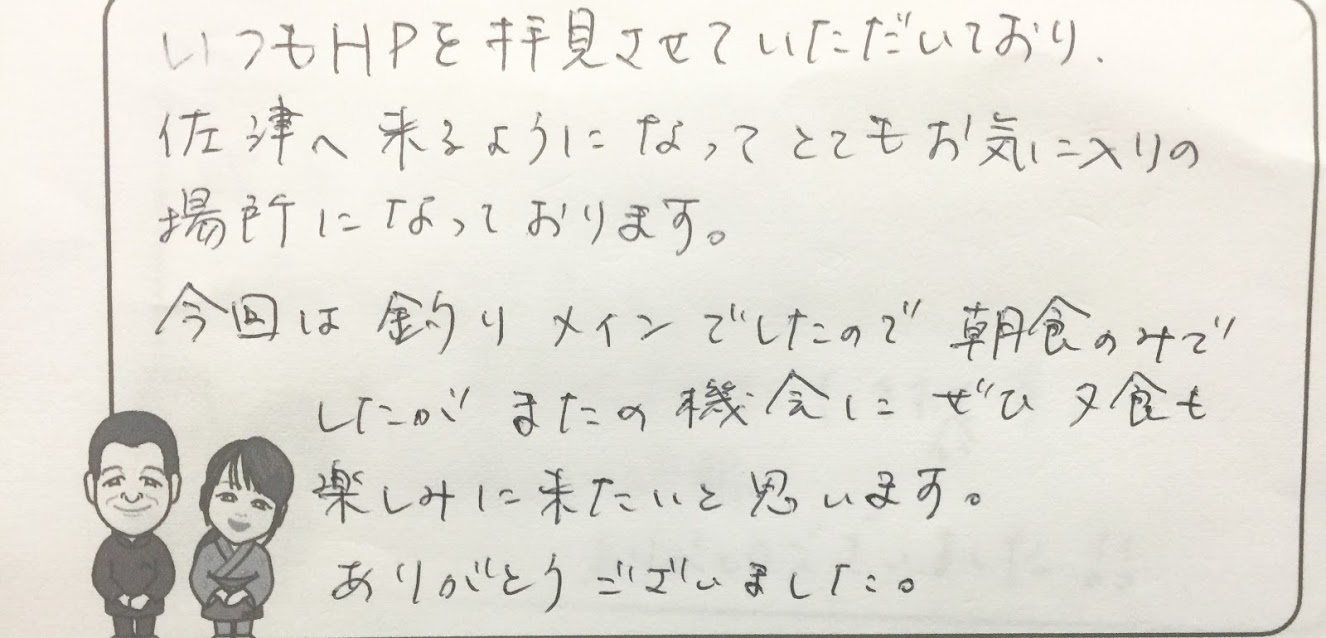 いつもHPを拝見させていただいており、
佐津へ来るようになってとてもお気に入りの
場所になっております。
今回は釣りメインでしたので朝食のみで
したがまたの機会にぜひ夕食も
楽しみに来たいと思います。
ありがとうございました。